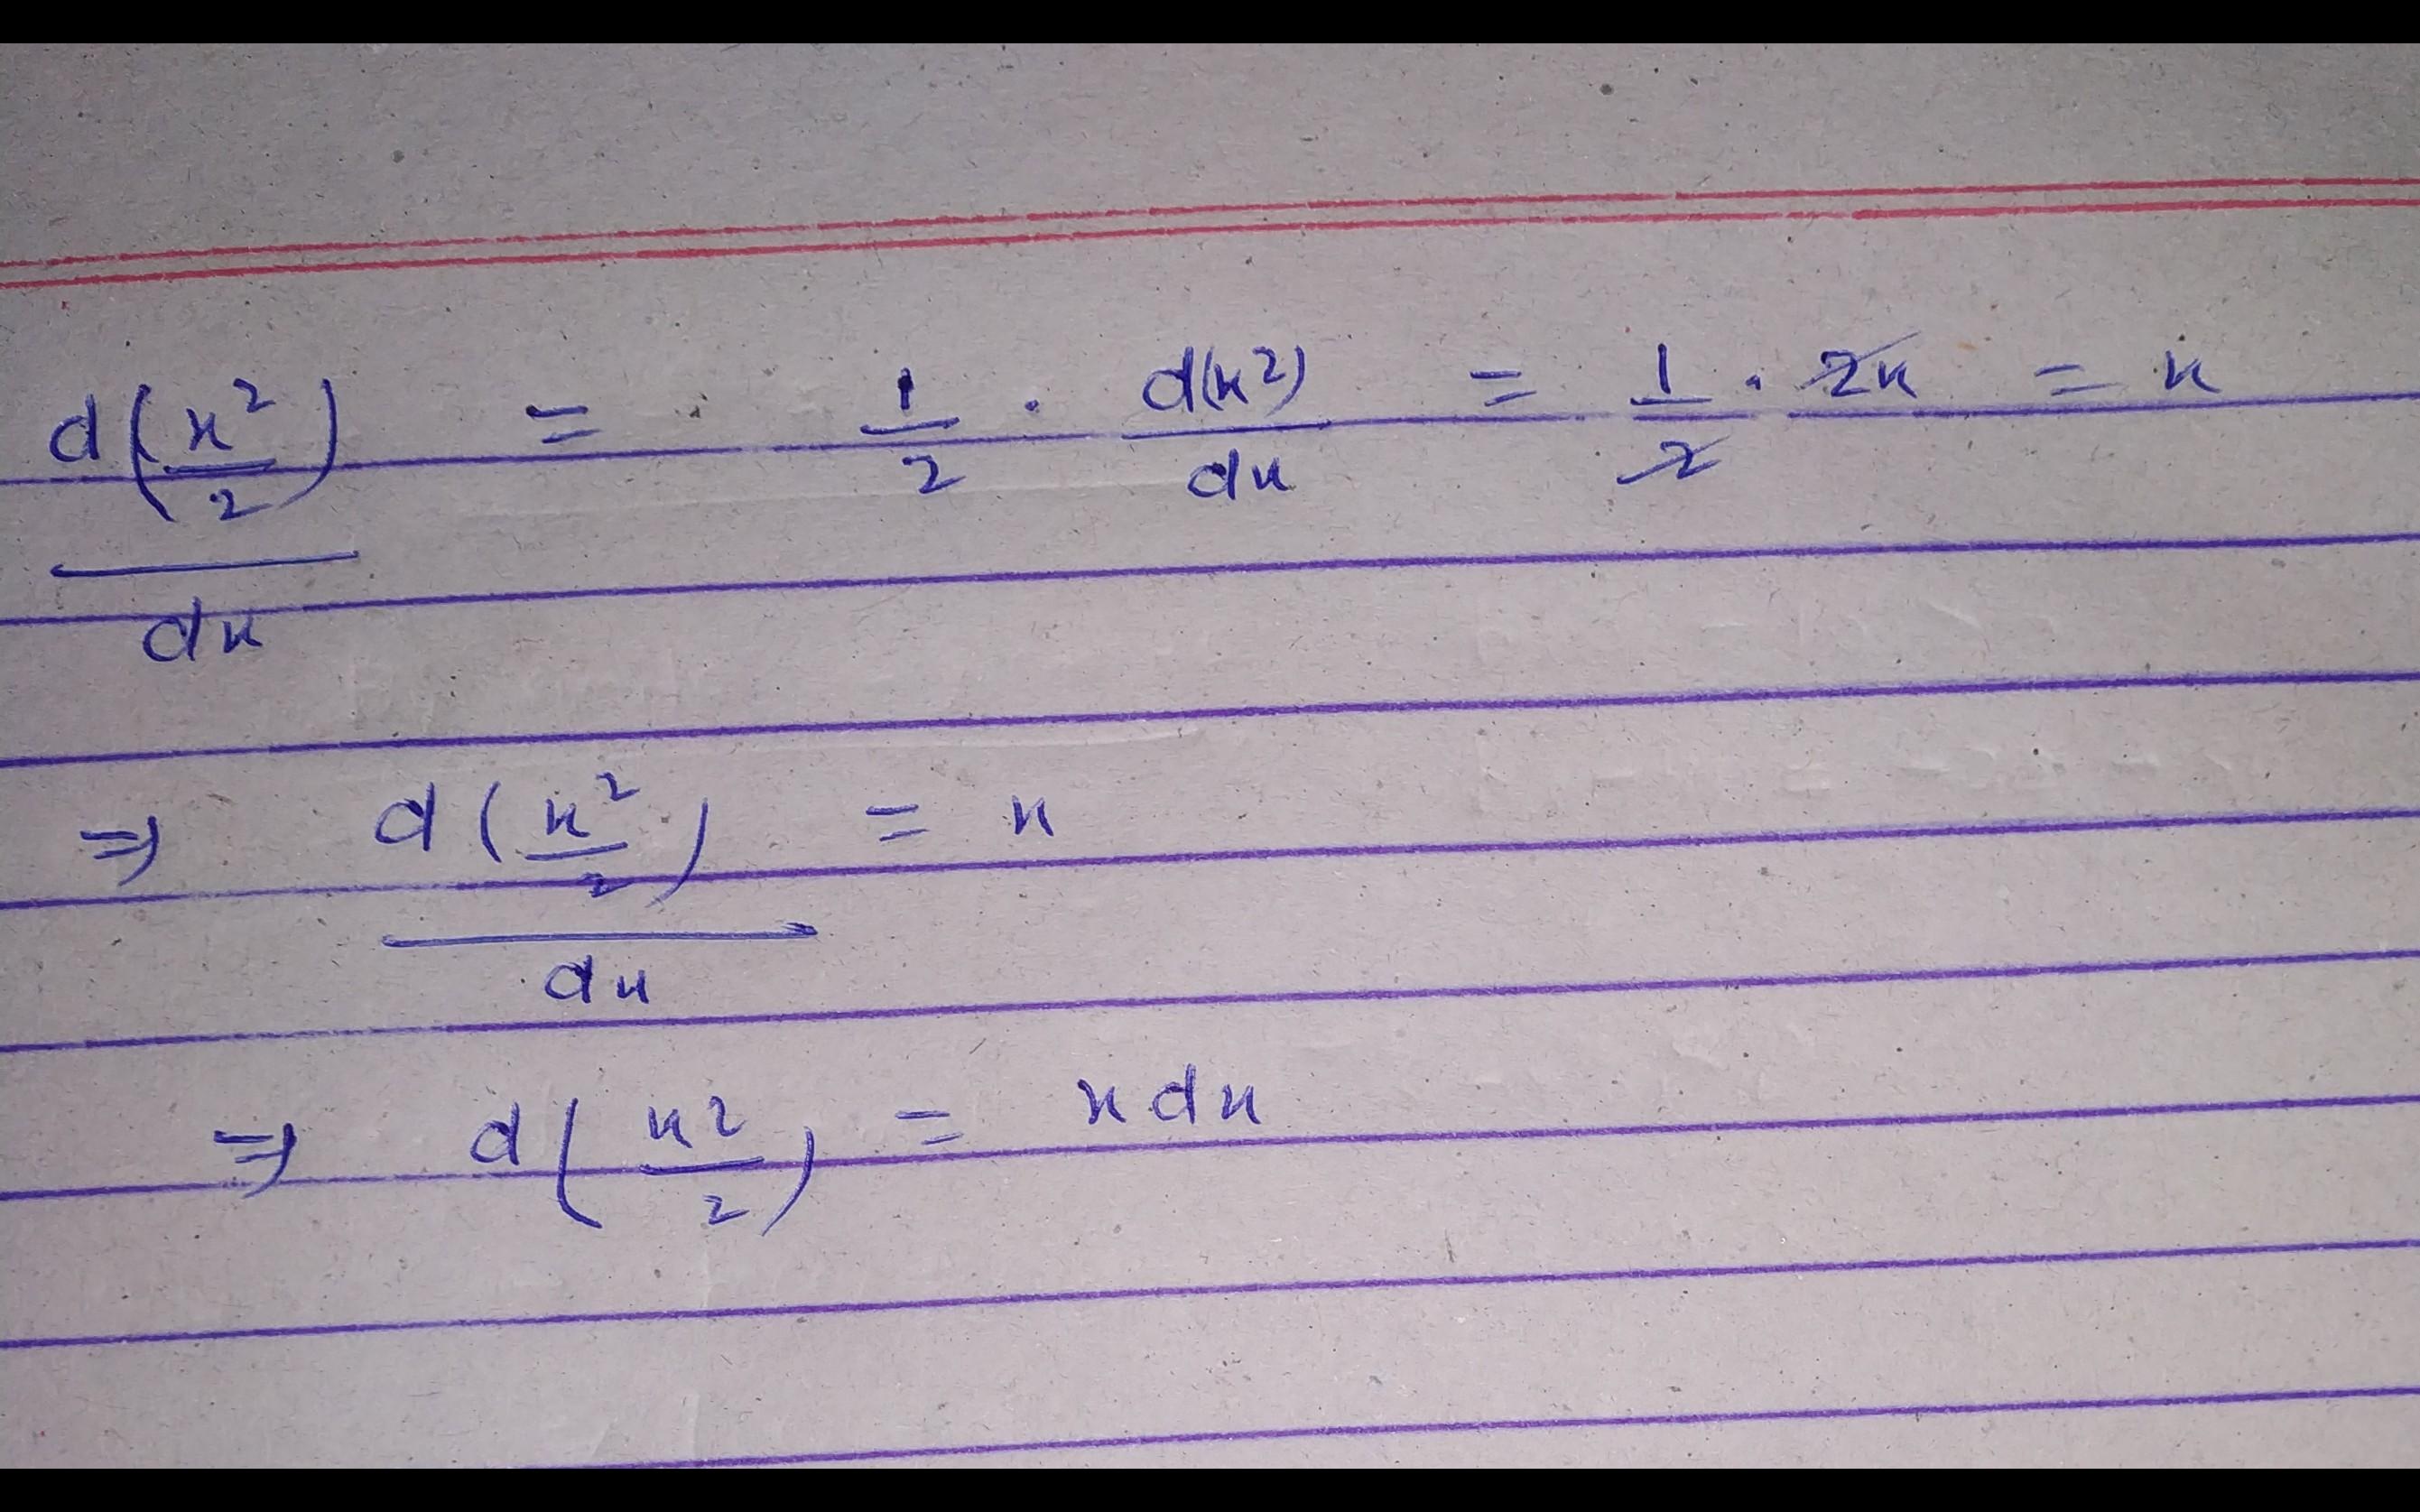 d(x²/2)/dx = 1/2 · d(x²)/dx = 1/2 · 2x = x
⇒ d(x²/2)/dx = x
⇒ d(x²/2) = x dx